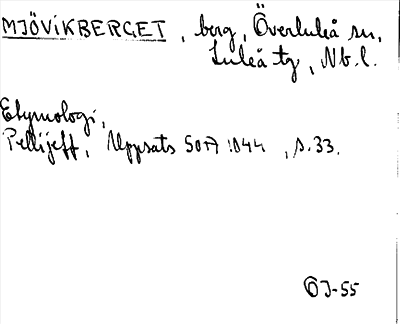 MJÖVIKBERGET, berg, Överluleå sn,
Luleå tg, Nb.l.
Etymologi,
Pellijeff, Uppsats SOFI :044, s.33.
ÖJ-55